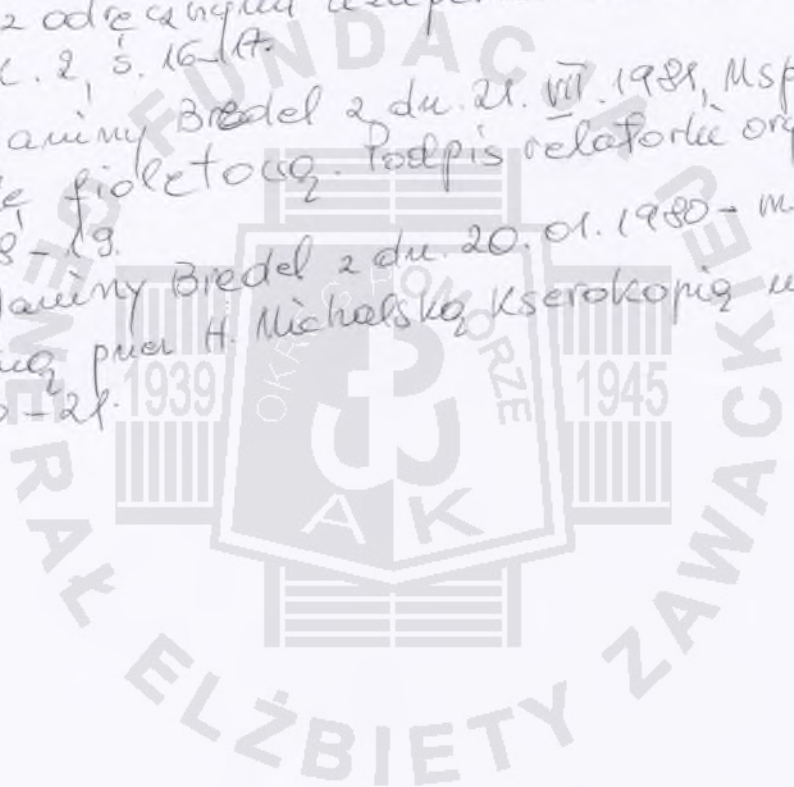 z odręcznymi
k. 2, s. 16-17.
Janiny Bredel z dn. 21. VII. 1981, Msp
fioletową. Podpis relatorki
8-19.
Janiny Bredel z dn. 20.01.1980 - m
przez H. Michalską kserokopią
0-21.
FUNDACJA
GENERAŁ ELŻBIETY ZAWACKIEJ
OKRĘG POMORZE
1939
1945
A K